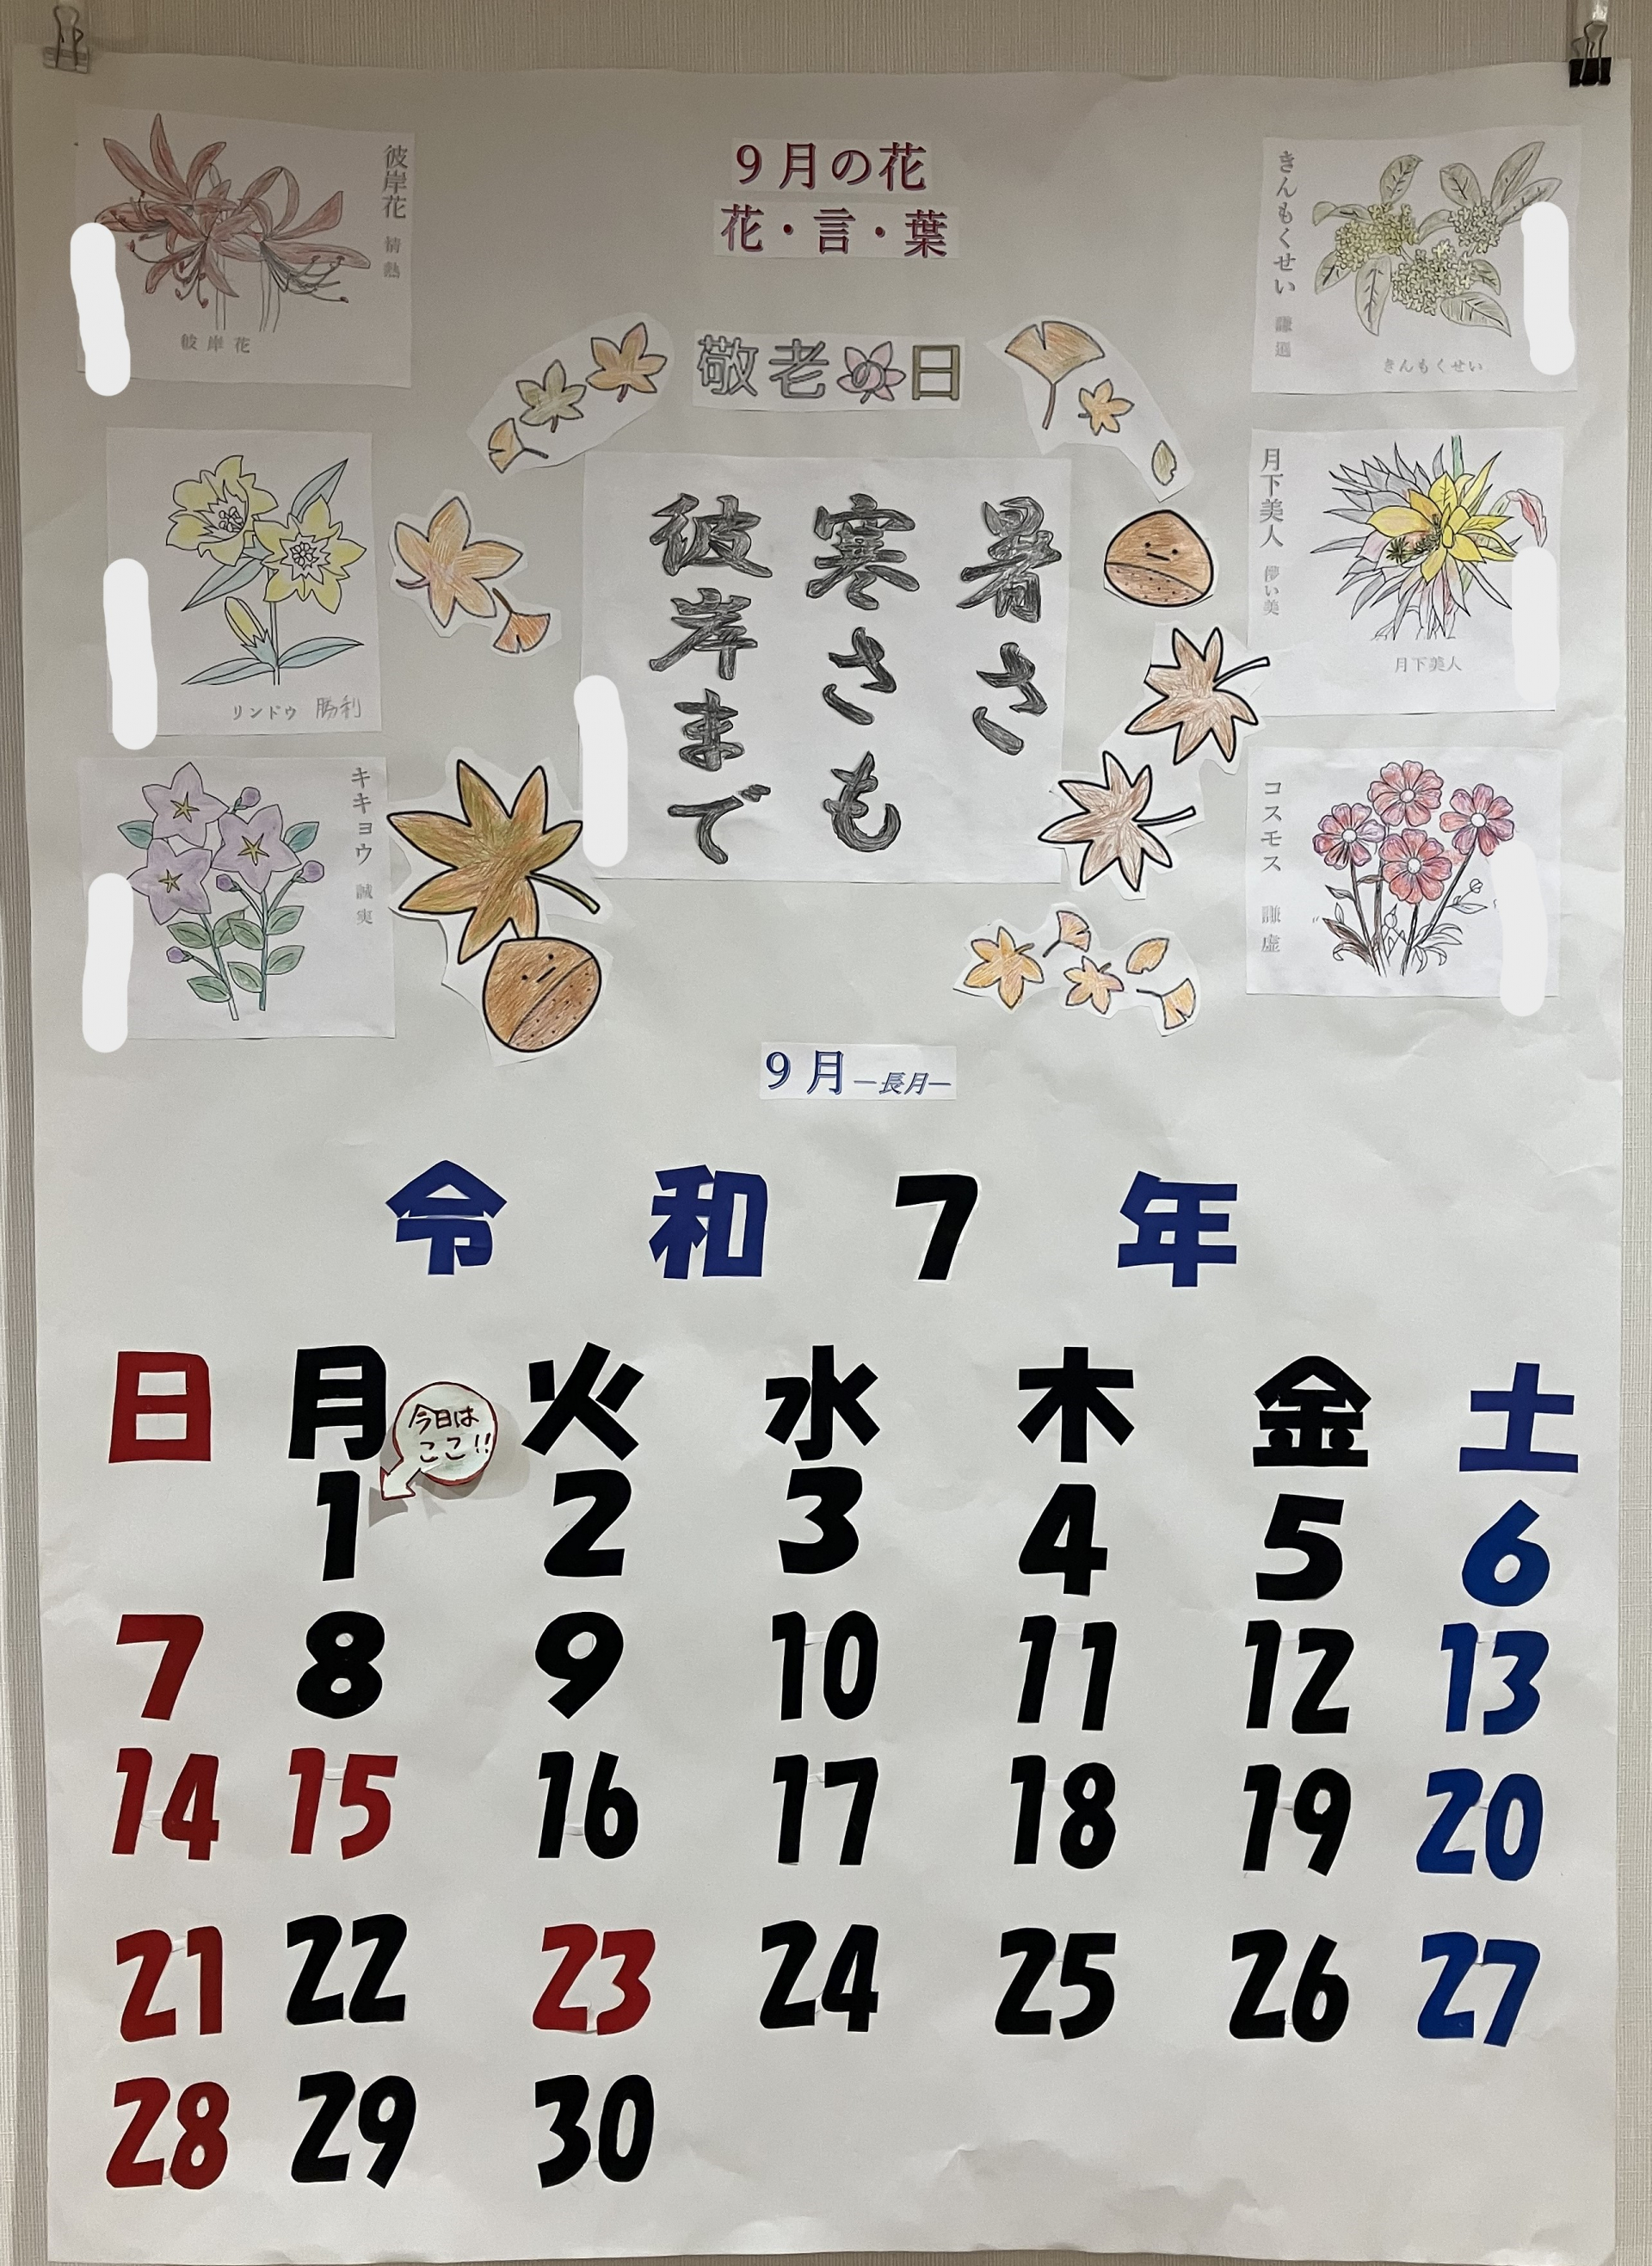 9月の花
花・言・葉
彼岸花 情熱
彼岸花
きんもくせい 謙遜
きんもくせい
敬老の日
リンドウ 勝利
月下美人 儚い美
月下美人
暑さ
寒さも
彼岸まで
キキョウ 誠実
コスモス 謙虚
9月―長月―
令和7年
日 月 火 水 木 金 土
今日は
ここ!!
1 2 3 4 5 6
7 8 9 10 11 12 13
14 15 16 17 18 19 20
21 22 23 24 25 26 27
28 29 30